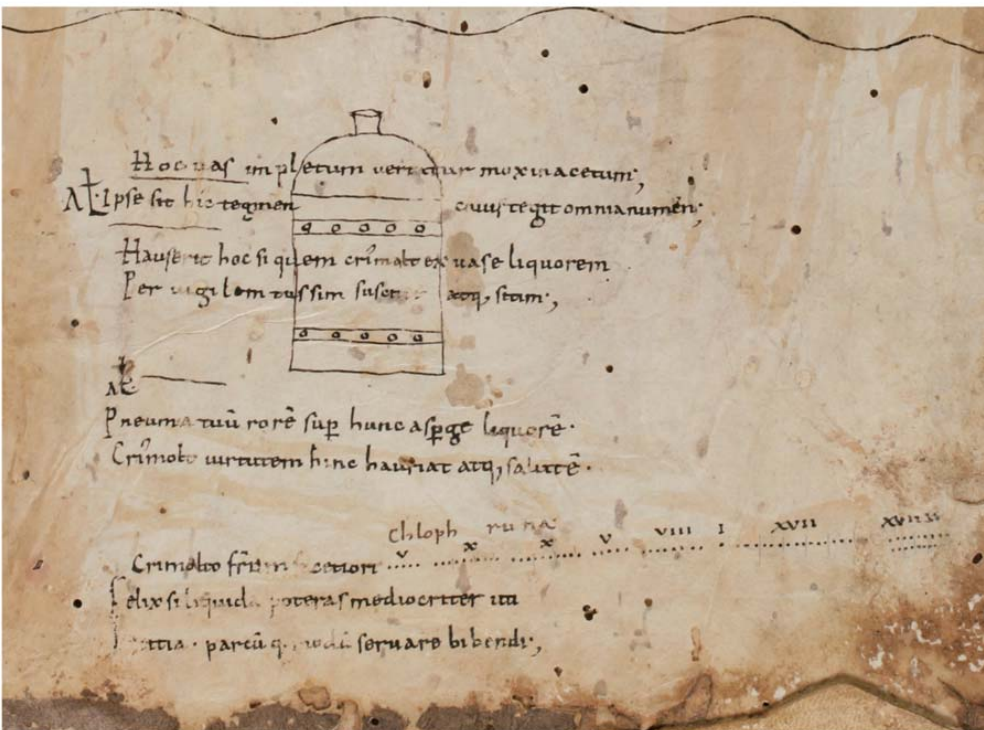 Hoc uas impletum vertatur mox in acetum;
AL Ipse sit hic tegmen cuius tegit omnia numen;
Hauserit hoc si quem crimolt ex uase liquorem
Per uigilem tussim atq; sitim;
AL
Pneuma tuū rorē suꝑ hunc asꝑge liquorē.
Crimolt uirtutem hinc hauriat atq; salutē.
chloph runa
v x x v viii i xvii
Crimolto
Felix si liquida poteras mediocriter uti
parcū q; modū seruare bibendi;